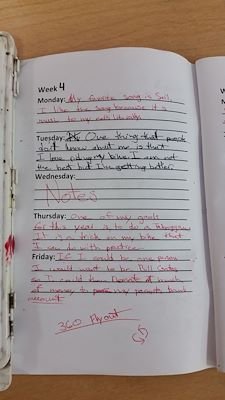 Week 4
Monday: My favorite song is Sail,
I like the song because it's
music to my ears literally.
Tuesday: One thing that people
don't know about me is that
I love riding my bike. I am not
the best but I'm getting better.
Wednesday:
Notes
Thursday: One of my goals
for this year is to do a
It is a trick on my bike that
I can do with practice.
Friday: If I could be one person
I would want to be Bill Gates
so I could then donate a bunch
of money to my parents bank
account
360
W
M